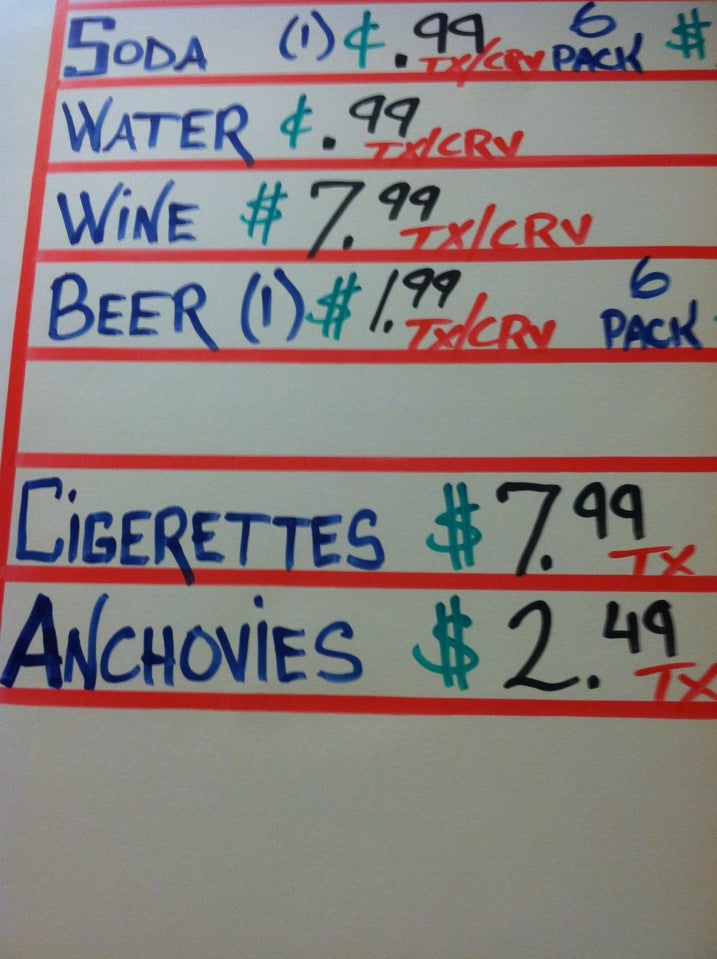 SODA (1) ¢.99 TX/CRV 6 PACK $
WATER ¢.99 TX/CRV
WINE $7.99 TX/CRV
BEER (1) $1.99 TX/CRV 6 PACK
CIGERETTES $7.99 TX
ANCHOVIES $2.49 TX